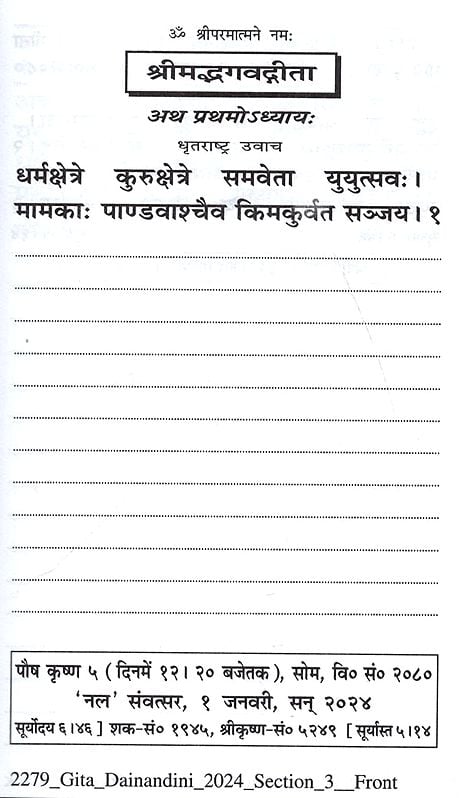 ॐ श्रीपरमात्मने नमः
श्रीमद्भगवद्गीता
अथ प्रथमोऽध्यायः
धृतराष्ट्र उवाच
धर्मक्षेत्रे कुरुक्षेत्रे समवेता युयुत्सवः।
मामकाः पाण्डवाश्चैव किमकुर्वत सञ्जय। १
पौष कृष्ण ५ ( दिनमें १२। २० बजेतक ), सोम, वि० सं० २०८०
‘नल’ संवत्सर, १ जनवरी, सन् २०२४
सूर्योदय ६।४६ ] शक-सं० १९४५, श्रीकृष्ण-सं० ५२४९ [ सूर्यास्त ५।१४
2279_Gita_Dainandini_2024_Section_3__Front